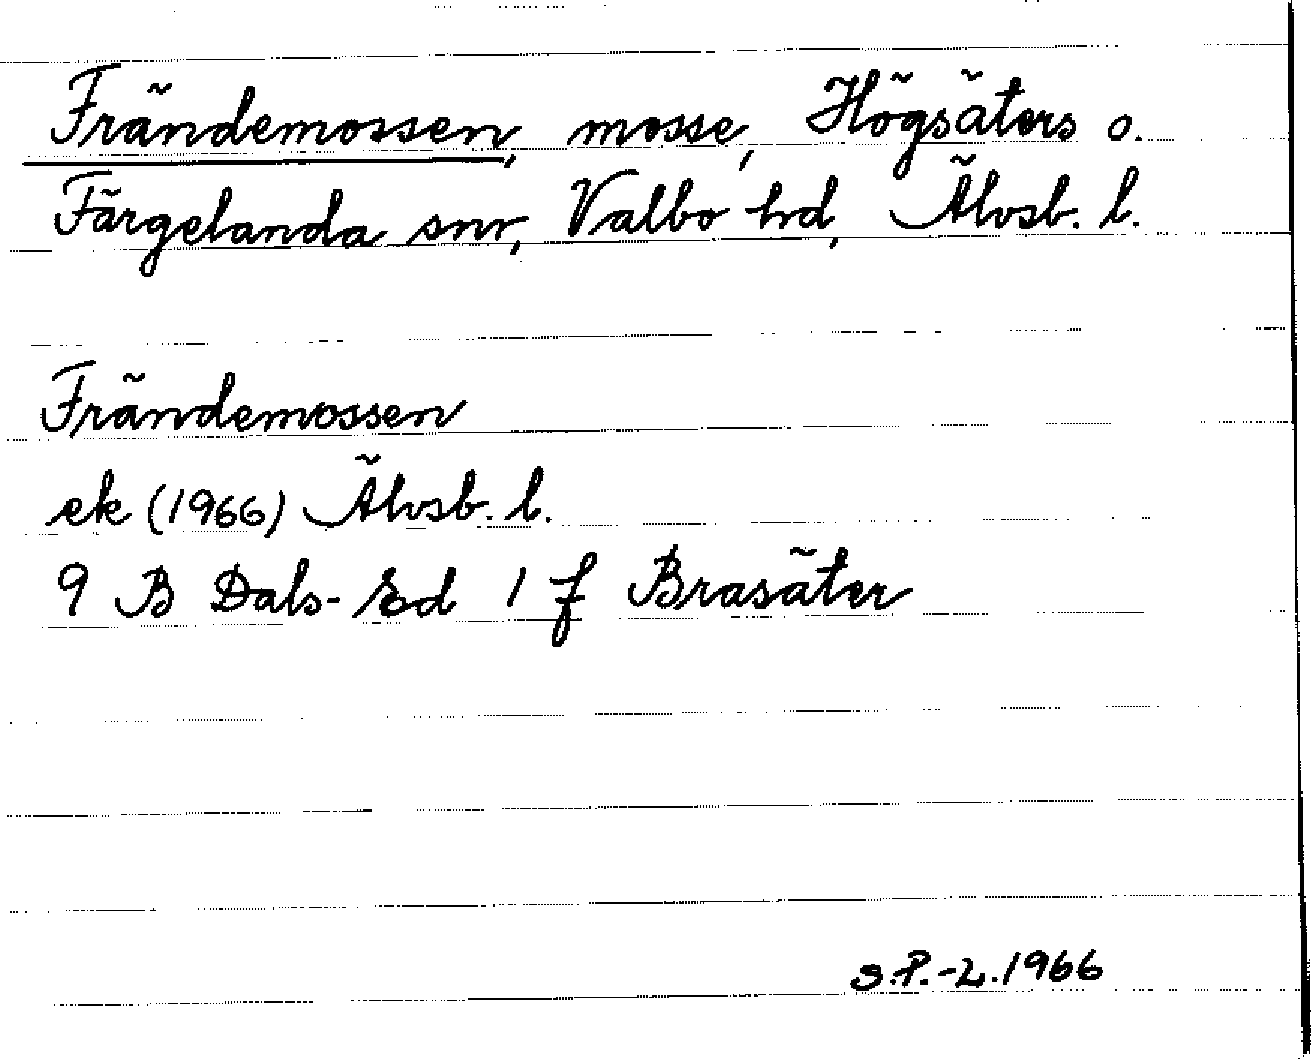 Frändemossen, mosse, Högsäters o.
Färgelanda snr, Valbo hd, Älvsb. l.
Frändemossen
ek (1966) Älvsb. l.
9 B Dals-Ed 1 f Brasäter
S.P.-L. 1966